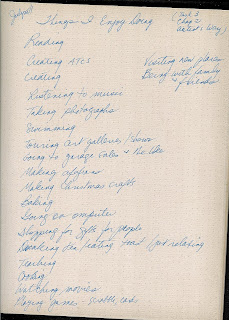 Things I Enjoy Doing
Reading
Creating ATCs
Creating
Listening to music
Taking photographs
Swimming
Touring art galleries / shows
Going to garage sales + the like
Making
Making Christmas crafts
Baking
Going on computer
Shopping for gifts for people
Drinking tea/eating toast (just relaxing
Teaching
Cooking
Watching movies
Playing games - scrabble, cards
Task 2
Chap 2
Artist's Way)
Visiting new places
Being with family
+ friends